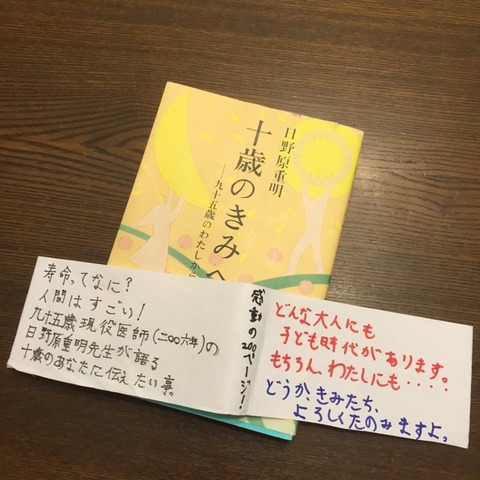 日野原重明
十歳のきみへ
―九十五歳のわたしから
寿命ってなに?
人間はすごい!
九十五歳現役医師(二〇〇六年)の
日野原重明先生が語る
十歳のあなたに伝えたい事。
感動の200ページ!
どんな大人にも
子ども時代があります。
もちろん、わたしにも・・・・
どうか、きみたち、
よろしくたのみますよ。